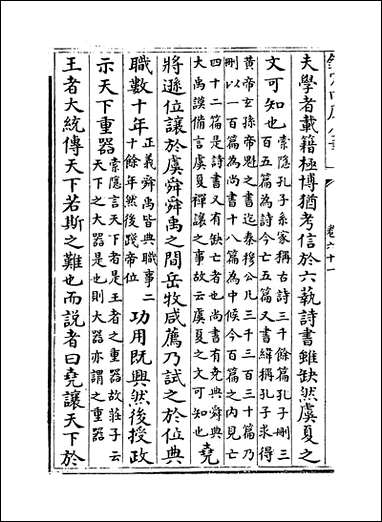 卷六十一
夫學者載籍極博猶考信於六蓺詩書雖缺然虞夏之
文可知也索隱孔子系家稱古詩三千餘篇孔子刪三
百五篇為詩今亡五篇又書緯稱孔子求得
黃帝玄孫帝魁之書迄秦穆公凡三千三百三十篇乃
刪以一百篇為尚書十八篇為中候今百篇之内見亡
四十二篇是詩書又有缺亡者也尚書有堯典舜典
大禹謨備言虞夏禪讓之事故云虞夏之文可知也堯
將遜位讓於虞舜舜禹之間岳牧咸薦乃試之於位典
職數十年正義舜禹皆典職事二
十餘年然後踐帝位功用既興然後授政
示天下重器索隱言天下者是王者之重器故莊子云
天下之大器是也則大器亦謂之重器
王者大統傳天下若斯之難也而說者曰堯讓天下於